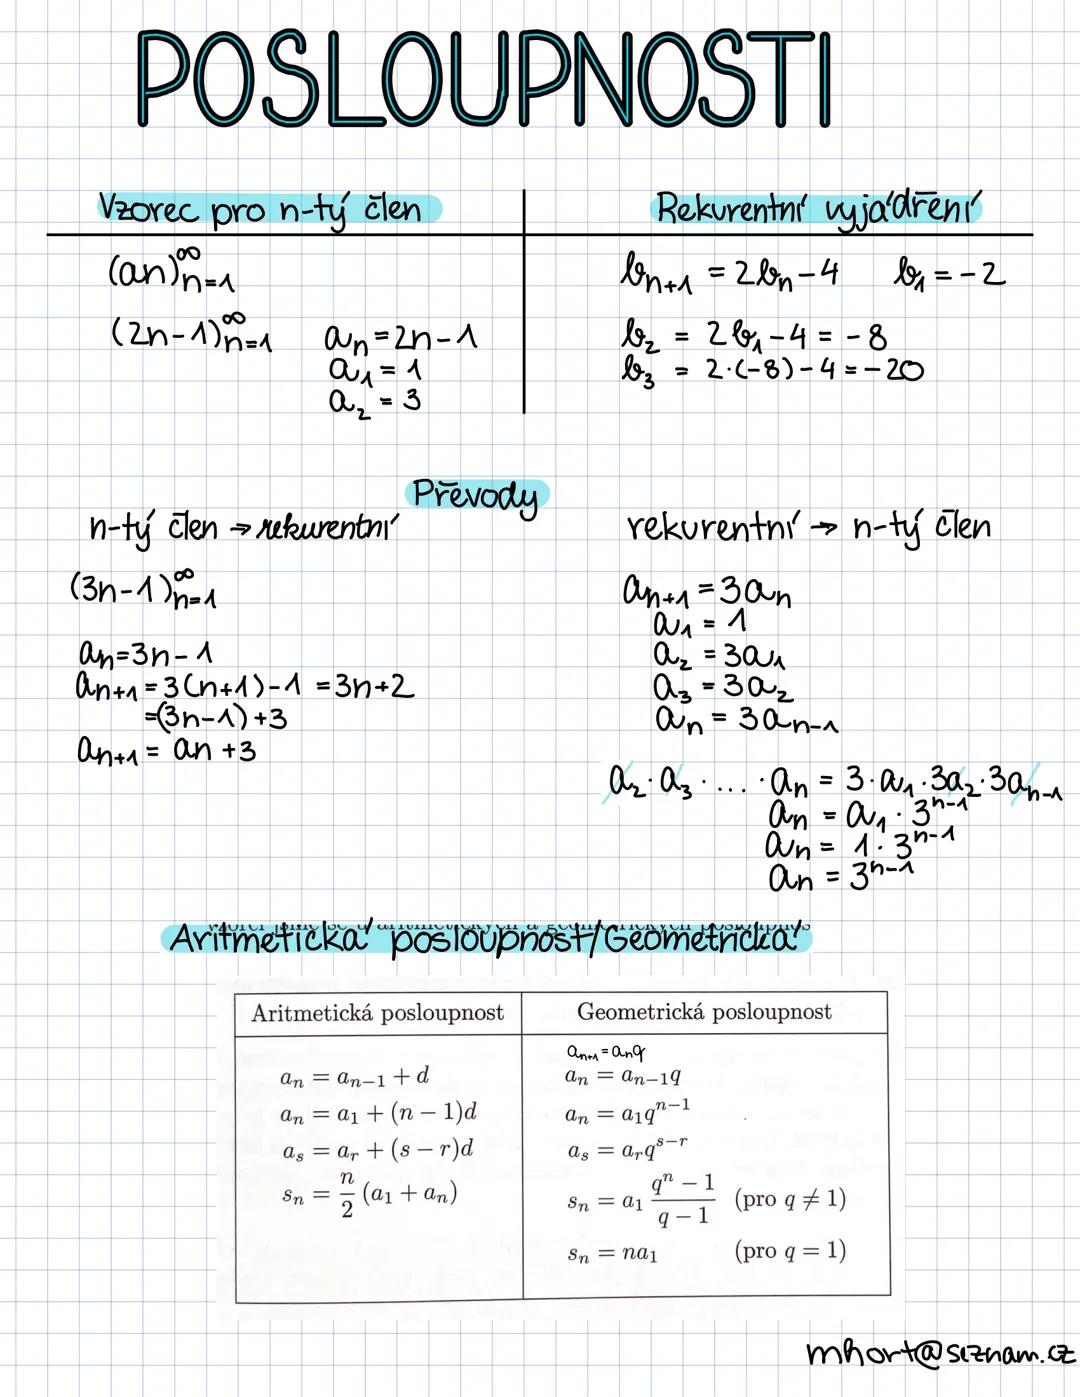 POSLOUPNOSTI
Vzorec pro n-tý člen
(an)∞n=1
(2n-1)∞n=1 an=2n-1
a1 = 1
a2 = 3
Rekurentní vyjádření
bn+1 = 2bn-4 b1 = -2
b2 = 2b1-4 = -8
b3 = 2·(-8)-4 = -20
Převody
n-tý člen → rekurentní
(3n-1)∞n=1
an=3n-1
an+1 = 3(n+1)-1 = 3n+2
=(3n-1)+3
an+1 = an +3
rekurentní → n-tý člen
an+1 = 3an
a1 = 1
a2 = 3a1
a3 = 3a2
an = 3an-1
a2·a3·...·an = 3·a1·3a2·3an-1
an = a1·3^n-1
an = 1·3^n-1
an = 3^n-1
Aritmetická posloupnost/Geometrická
Aritmetická posloupnost
an = an−1 + d
an = a1 + (n − 1)d
as = ar + (s − r)d
sn = n/2 (a1 + an)
Geometrická posloupnost
an+1 = anq
an = an−1q
an = a1q^n−1
as = arq^s−r
sn = a1 q^n − 1 / q − 1 (pro q ≠ 1)
sn = na1 (pro q = 1)
mhort@seznam.cz